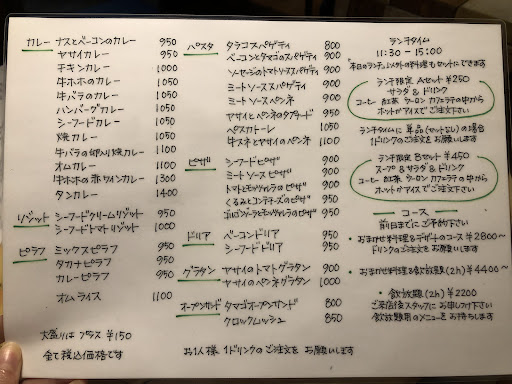 カレー ナスとベーコンのカレー 950
ヤサイカレー 950
チキンカレー 1000
牛ホホのカレー 1050
牛バラのカレー 1050
ハンバーグカレー 1050
シーフードカレー 1050
焼カレー 1050
牛バラの切り焼カレー 1100
オムカレー 1100
牛ホホの赤ワインカレー 1300
タンカレー 1400
リゾット シーフードクリームリゾット 950
シーフードトマトリゾット 1050
ピラフ ミックスピラフ 950
タカナピラフ 950
カレーピラフ 950
オムライス 1100
大盛りは プラス ¥150
全て税込価格です
パスタ タラコスパゲティ 800
ベーコンとタマゴスパゲティ 900
ソーセージのトマトソーススパゲティ 900
ミートソーススパゲティ 900
ミートソースペンネ 900
ヤサイとペンネのグラタード 950
ペスカトーレ 1050
牛スネとヤサイのペンネ 1100
ピザ シーフードピザ 900
ミートソースピザ 900
トマトとモッツァレラのピザ 900
くるみとゴルゴンチーズのピザ 950
ゴルゴンゾーラとモッツァレラのピザ 950
ドリア ベーコンドリア 950
シーフードドリア 950
グラタン ヤサイのトマトグラタン 900
ヤサイのペンネグラタン 1000
オープンサンド タマゴオープンサンド 800
クロックムッシュ 850
お1人様 1ドリンクのご注文を お願いします
ランチタイム
11:30 - 15:00
本日のランチ以外の料理もセットにできます
ランチ限定 Aセット ¥250
サラダ & ドリンク
コーヒー 紅茶 ウーロン カフェラテの中から
ホットかアイスでご注文下さい
ランチタイムに 単品(セットなし)の場合
1ドリンクのご注文を お願いします
ランチ限定 Bセット ¥450
スープ & サラダ & ドリンク
コーヒー 紅茶 ウーロン カフェラテの中から
ホットかアイスでご注文下さい
コース
前日までにご予約下さい
・おまかせ料理&デザートのコース ¥2800~
ドリンクのご注文をお願いします
・おまかせ料理&飲放題(2h) ¥4400~
・飲放題(2h) ¥2200
ご来店後スタッフにお申しつけ下さい
飲放題用のメニューをお持ちします